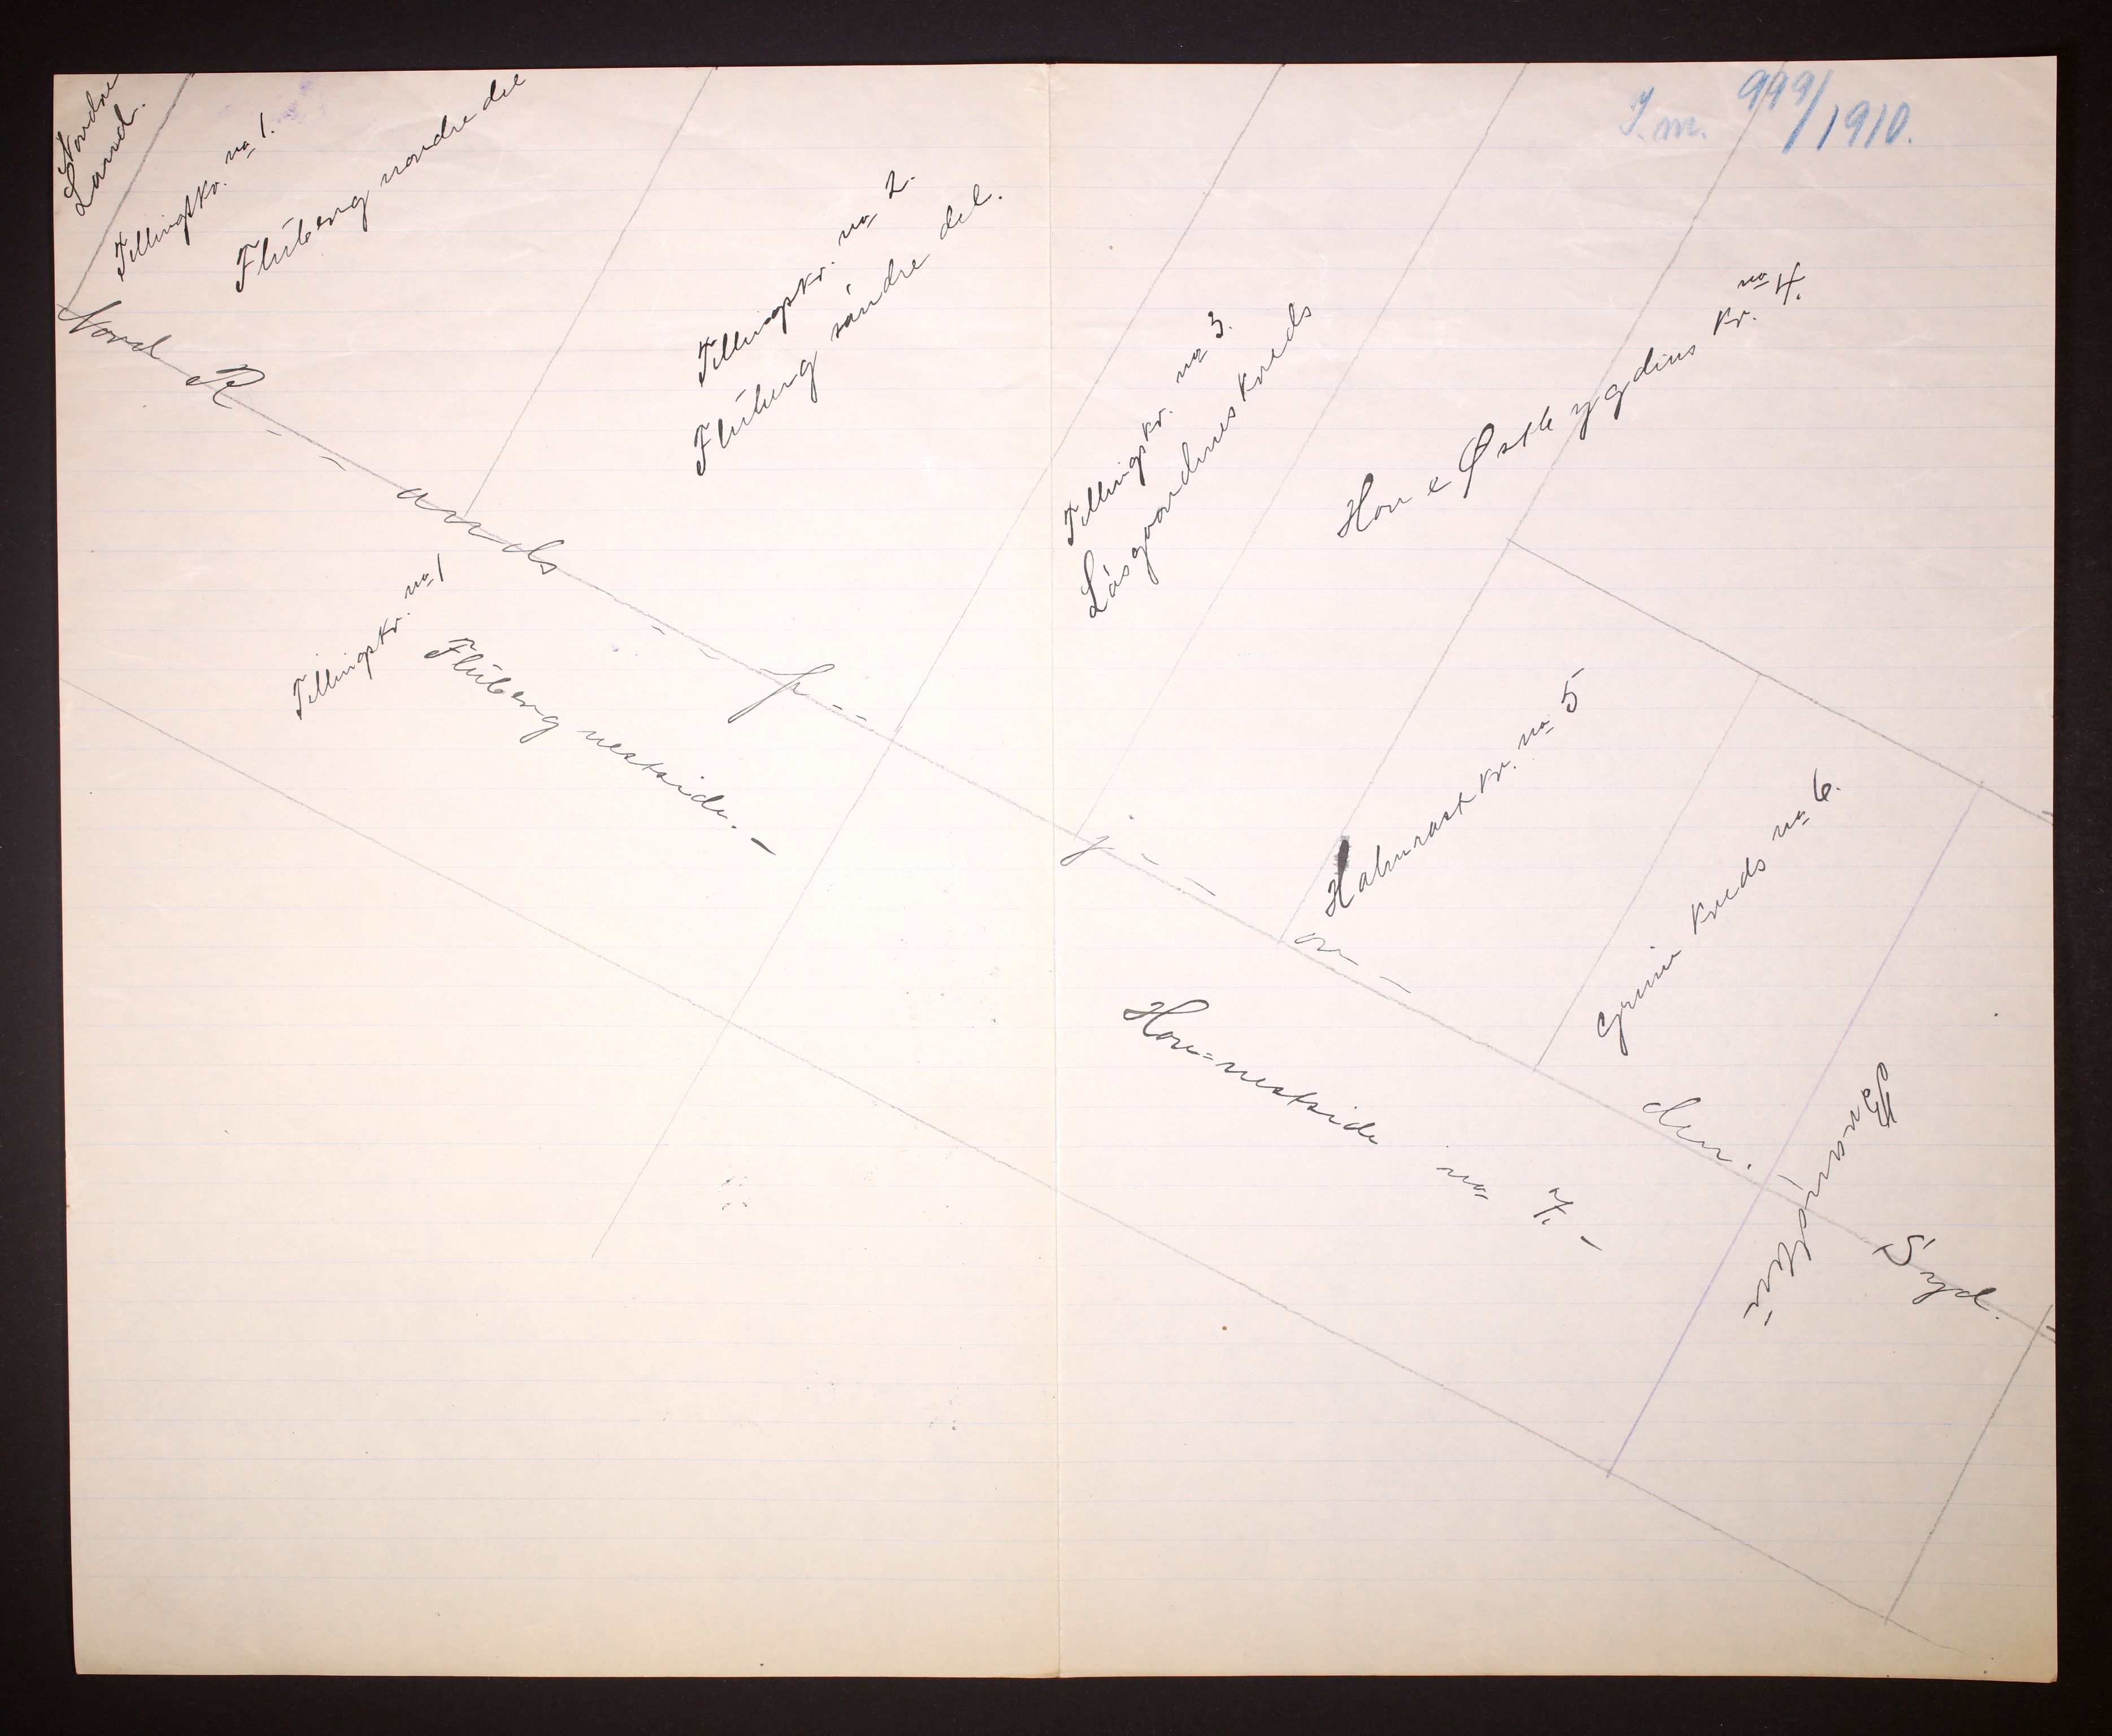 J. m. 949/1910.
Nordre
Land.
Tellingskr. no 1.
Fluberg nordre del
Tellingskr. no 2.
Fluberg søndre del.
Tellingskr. no 3.
Løsgaardenes kreds
Hov Østbygdens kr. no 4.
Nord R - - ands - - f - - j - - or - den. - Syd.
Tellingskr. no 1
Fluberg vestside. -
Halmrast kr. no 5
Grime kreds no 6.
Hov = vestside no 7. -